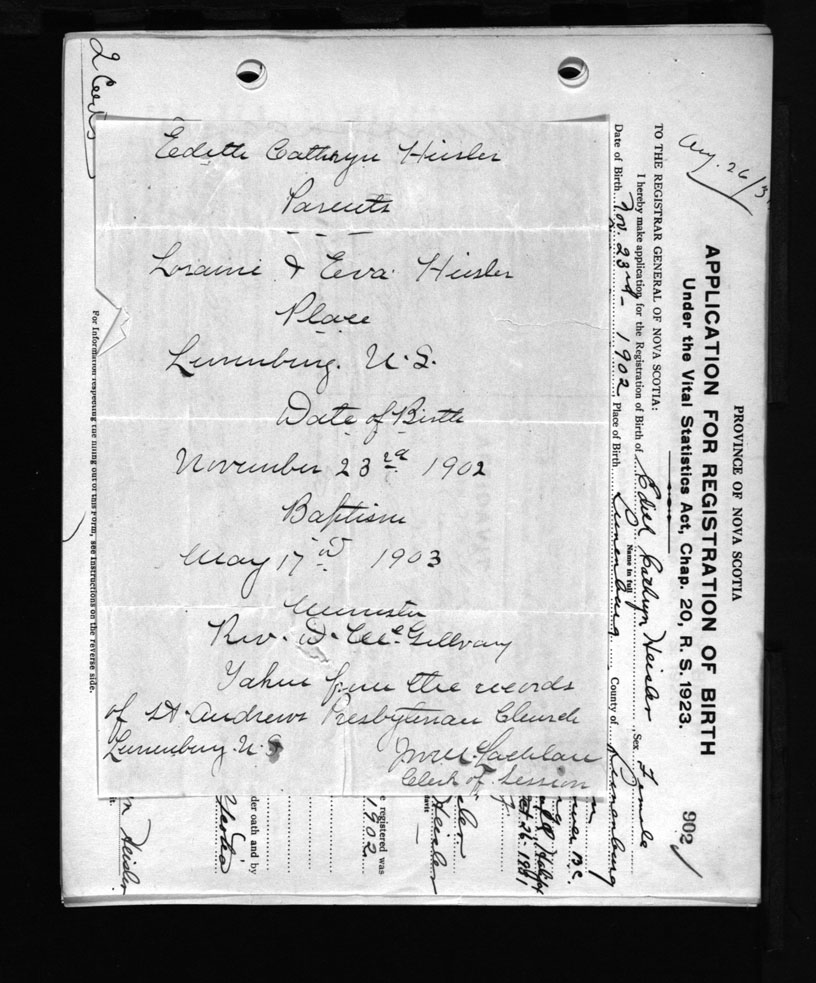 Edith Cathryn Heisler
Parents
Loraine & Eva Heisler
Place
Lunenburg. N.S.
Date of Birth
November 23rd 1902
Baptism
May 17th 1903
Minister
Rev. D. McGillvary
Taken from the records
of St. Andrews Presbyterian Church
Lunenburg. N.S.
Lachlan
Clerk of Session
2 Cards
Aug. 26/3
PROVINCE OF NOVA SCOTIA
APPLICATION FOR REGISTRATION OF BIRTH
Under the Vital Statistics Act, Chap. 20, R. S. 1923.
902
TO THE REGISTRAR GENERAL OF NOVA SCOTIA:
I hereby make application for the Registration of Birth of Edith Cathryn Heisler, Sex Female
Name in full
Date of Birth Nov. 23rd - 1902 Place of Birth Lunenburg County of Lunenburg
B.C.
Heisler
e registered was
1902
der oath and by
Heisler
For information respecting the filling out of this Form, see Instructions on the reverse side.